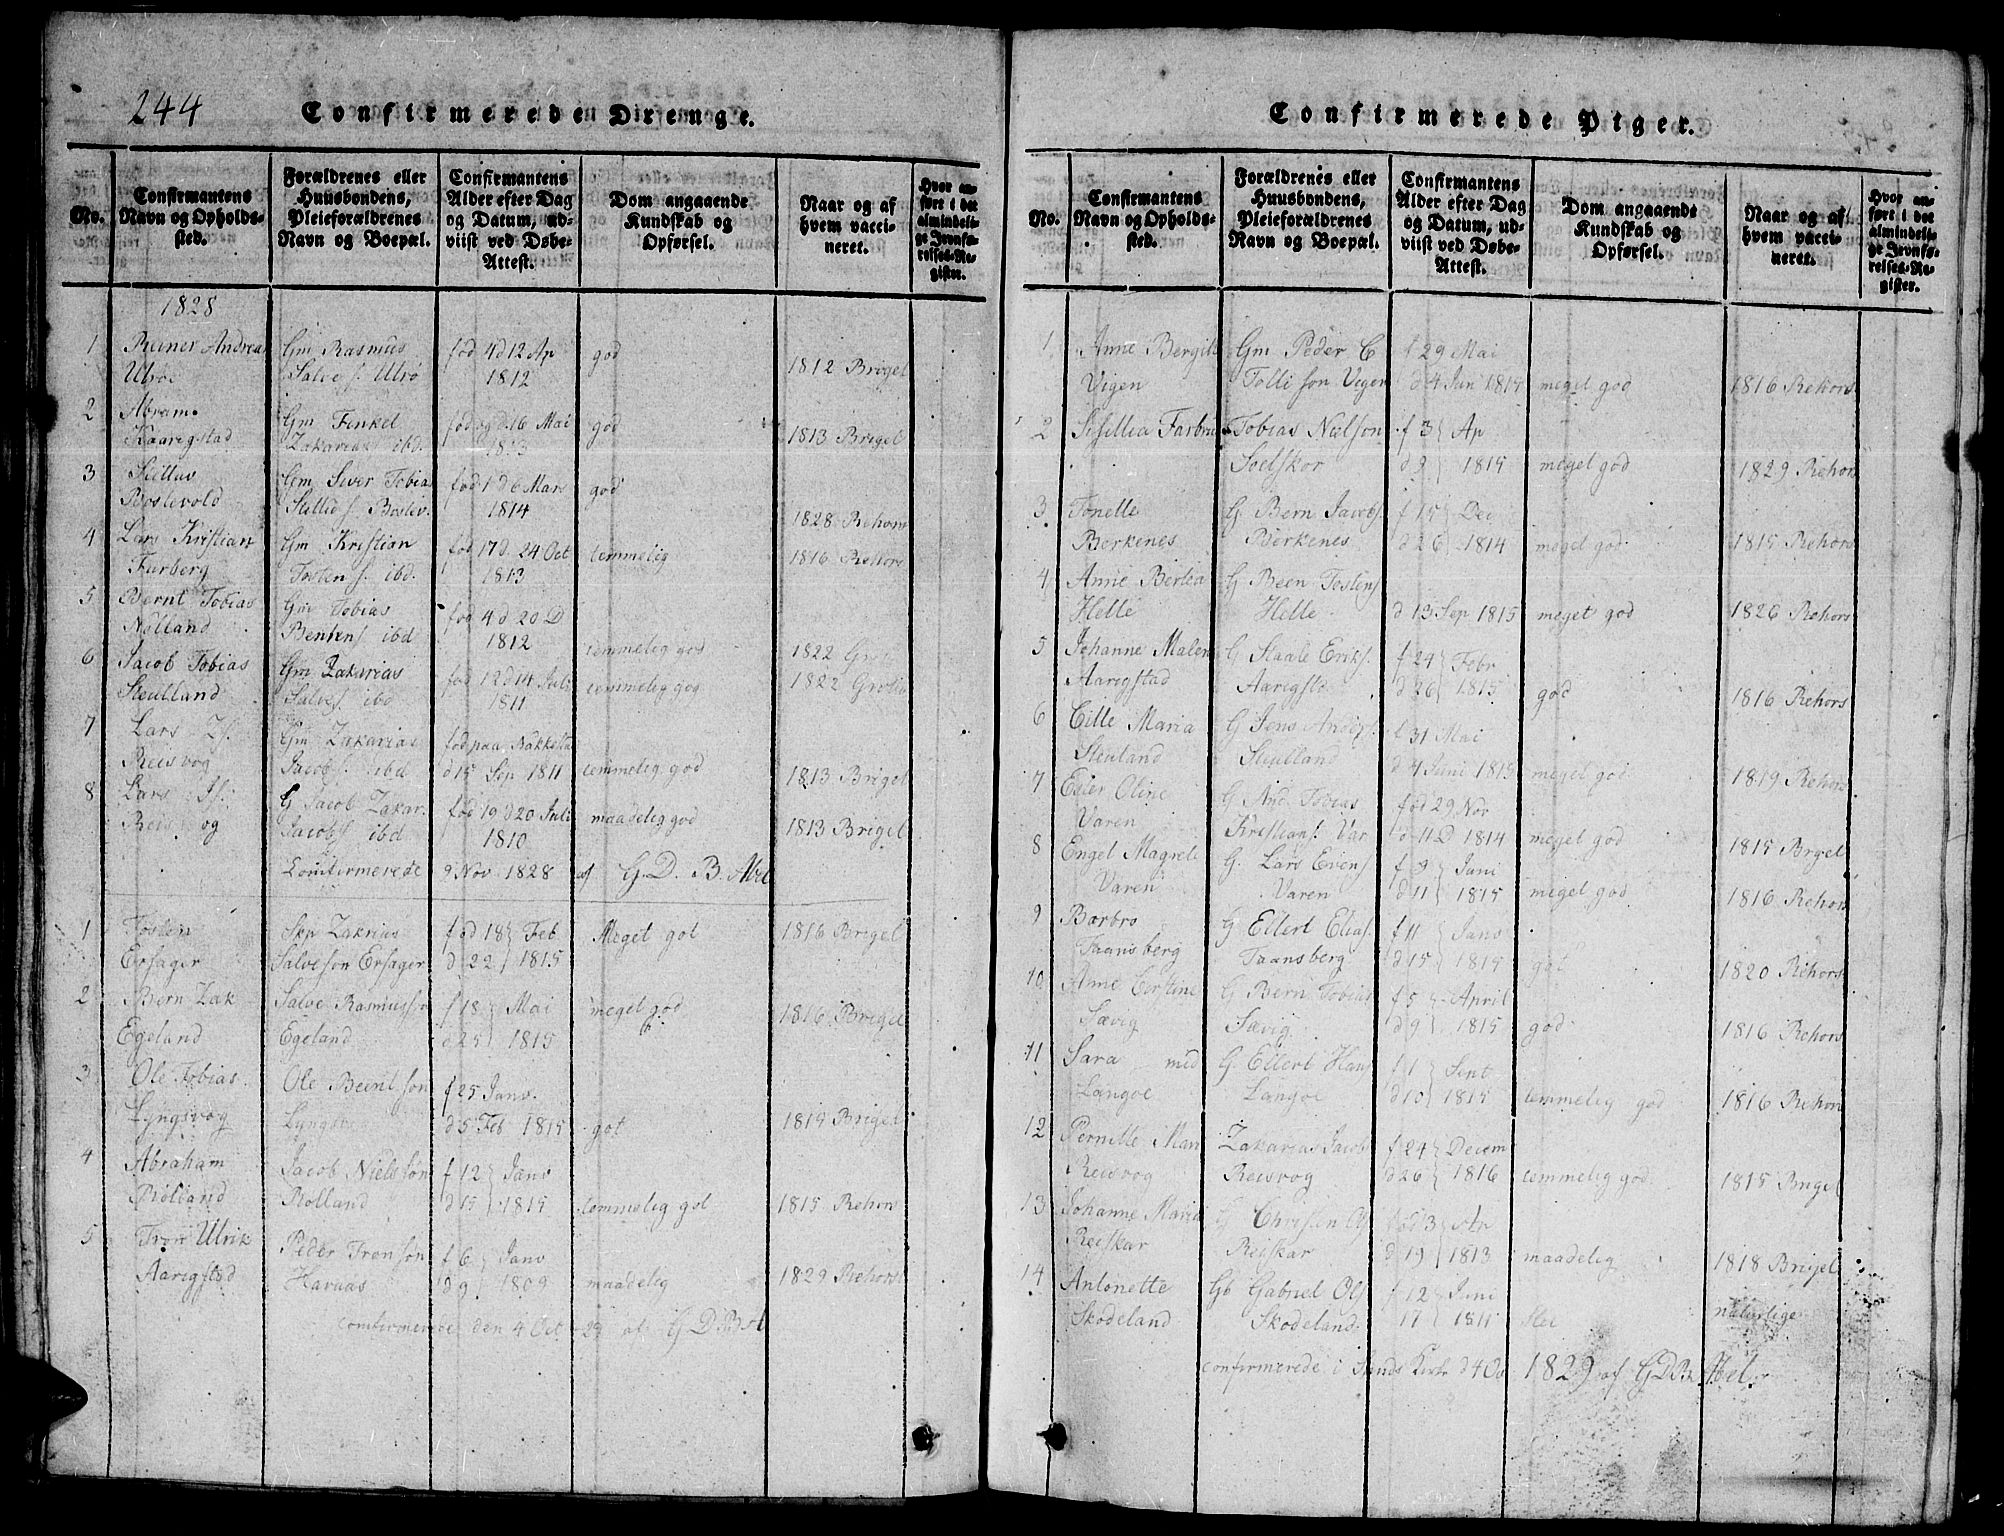 244
Confirmerede Drenge.
No.
Confirmantens Navn og Opholdssted.
Forældrenes eller Huusbondens, Pleieforældrenes Navn og Boepæl.
Confirmantens Alder efter Dag og Datum, udviist ved Døbe-Attest.
Dom angaaende Kundskab og Opførsel.
Naar og af hvem vaccineret.
Hvor anført i det almindelige Jevnførelses-Register.
1828
1 Reiner Andreas Gm Rasmus fød 4 d 12 Ap god
Ulsøe Salve s. Ulsø 1812 1812 Brigel
2 Abram Gm Finkel fød og d. 16 Mai god
Kaarigstad Zakarias ibd. 1813 1813 Brigel
3 Gm Siver Tobias fød 1 d 6 Mars god
Boslevold Boslev. 1814 1828 Rehors
4 Lars Kristian Gm Kristian fød 17 d. 24 Oct temmelig 1816 Rehors
Furberg Tosten s. ibd. 1813
5 Bernt Tobias Gm Tobias fød 4 d 20 D
Nolland Bentens ibd 1812 temmelig god 1822
6 Jacob Tobias Gm Zakarias fød 12 d 14 Juli temmelig gog 1822
Steulland Salves. ibd 1811
7 Lars Gm Zakarias fød paa
Reisvog Jacobs. ibd d 15 Sep 1811 temmelig god 1813 Brigel
8 Lars G Jacob Zakar. fød 19 d 20 Juli maadelig god
Reisvog Jacobs ibd 1810 1813 Brigel
Comfirmerede 9 Nov 1828 af G. D. B. Abel
1 Tosten Skp Zakrias fød 18 Feb Meget got 1816 Brigel
Ersager Salve søn Ersager d 22 1815
2 Bern Zak Salve Rasmussø f 18 Mai meget god 1816 Brigel
Egeland Egeland d 25 1815
3 Ole Tobias Ole Beent søn f 25 Janv.
Lyngsvog d 5 Feb 1815 got 1819 Brigel
4 Abraham Jacob Niels søn f 12 Janv
Rolland Rolland d 15 1815 temmelig got 1815 Rehors
5 Tron Ulrik Peder Tron søn f 6 Janv
Aarigstad Havaas d 9 1809 maadelig 1829 Rehors
comfirmerede den 4 Oct 29 af G D B A
Confirmerede Piger.
No.
Confirmantens Navn og Opholdssted.
Forældrenes eller Huusbondens, Pleieforældrenes Navn og Boepæl.
Confirmantens Alder efter Dag og Datum, udviist ved Døbe-Attest.
Dom angaaende Kundskab og Opførsel.
Naar og af hvem vaccineret.
Hvor anført i det almindelige Jevnførelses-Register.
1 Anne Bergit Gm Peder C f 29 Mai
Vigen Tolli søn Vigen d 4 Jun 1815 meget god 1816 Rehors
2 Sisillia Farbru Tobias Nielson f 3 Ap
Soelskor d 9 1815 meget god 1829 Rehors
3 Tonelle G Bern Jacobs f 15 Dec
Berkenes Berkenes d 26 1814 meget god 1815 Rehors
4 Anne Bertea G Been Tostens
Helle Helle d 13 Sep 1815 meget god 1826 Rehors
5 Johanne Malen G Staale Eriks. f 24 Febr
Aarigstad Aarigstd d 26 1815 god 1816 Rehors
6 Cille Maria G Jens f 31 Mai
Steuland Steulland d 4 Juni 1815 meget god 1819 Rehors
7 Ester Oline G And. Tobias fød 29 Nov
Varen Kristians. Var d 11 D 1814 meget god 1815 Brgel
8 Engel Magrete G. Lars Evens f 3 Juni
Varen Varen d 11 1815 meget god 1816 Rehors
9 Barbro G Ellert Elias. f 11 Janv
Taansberg Taansberg d 15 1815 got 1820 Rehors
10 Anne Cirstine G Bern Tobias f 5 April
Sævig Sævig d 9 1815 god 1816 Rehors
11 Sara G Ellert Hans f 1
Langoe Langoe d 10 1815 temmelig god 1816 Rehors
12 Pernille Mari Zakarias Jacob f 24 Decem
Reisvog Reisvog d 26 1816 temmelig god 1815 Brigel
13 Johanne Maria G Christen fød 3
Reiskar Reiskar d 19 1813 maadelig 1818 Brigel
14 Antonette Gb Gabriel Ols f 12 Juni
Skodeland Skodeland 17 1811 Slet naturlige
confirmerede i d 4 Oc 1829 af G D B Abel